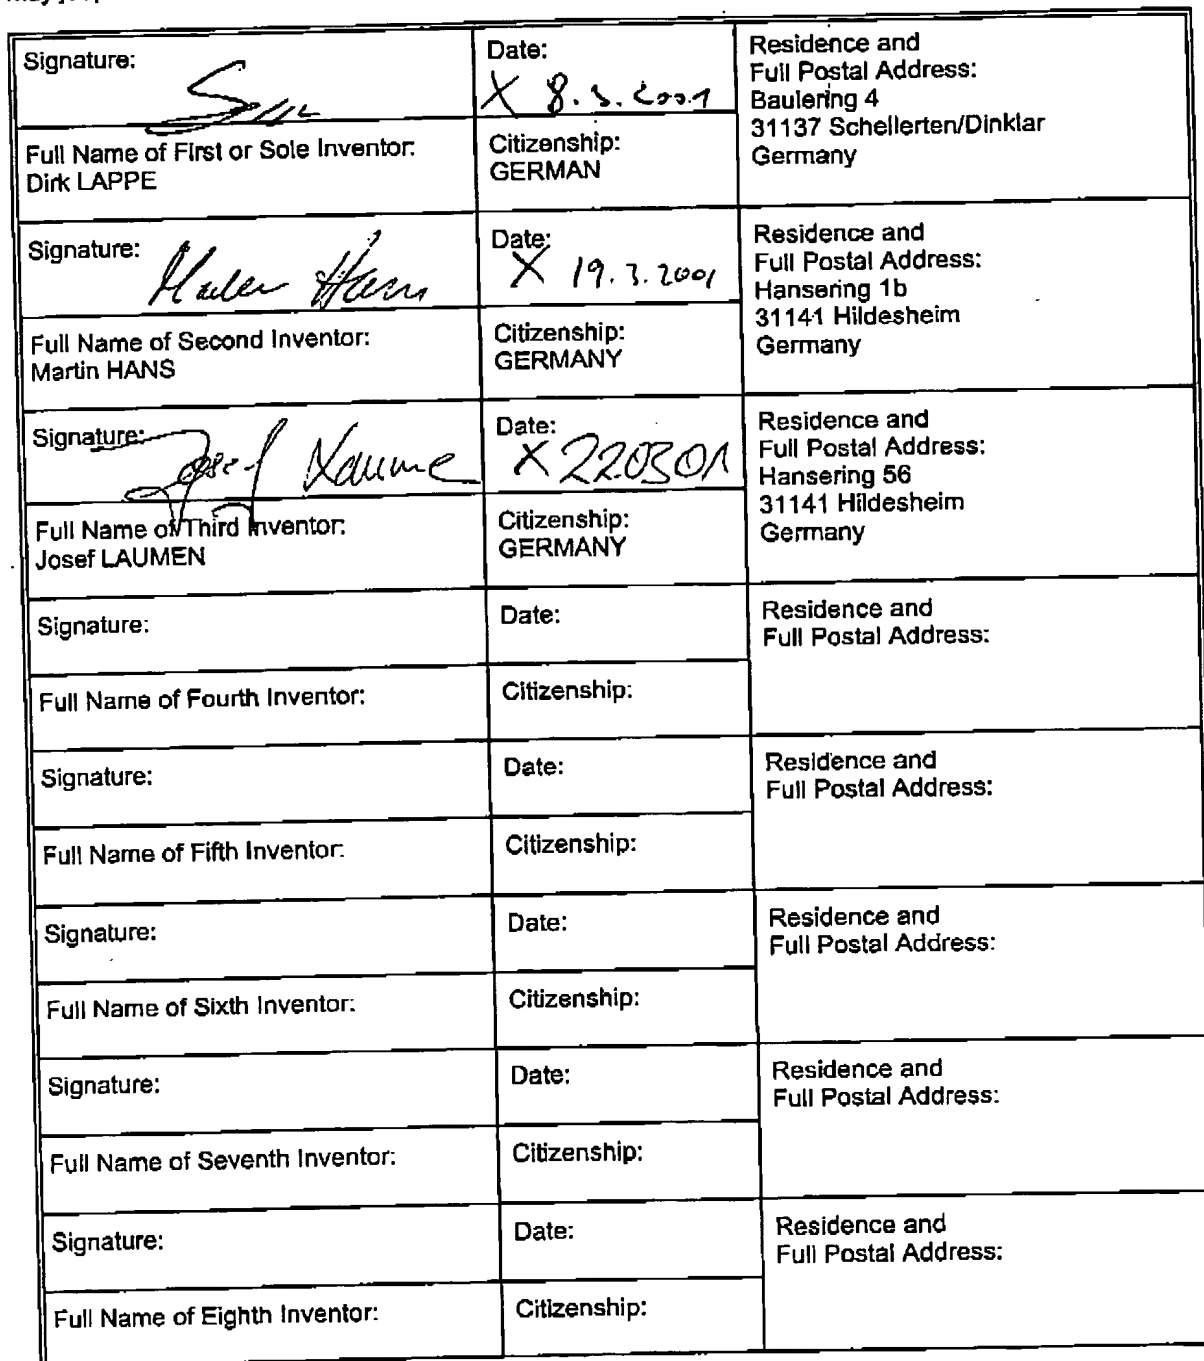 Signature:
Date:
X 8.3.2001
Residence and
Full Postal Address:
Baulering 4
31137 Schellerten/Dinklar
Germany
Full Name of First or Sole Inventor:
Dirk LAPPE
Citizenship:
GERMAN
Signature:
Martin Hans
Date:
X 19.3.2001
Residence and
Full Postal Address:
Hansering 1b
31141 Hildesheim
Germany
Full Name of Second Inventor:
Martin HANS
Citizenship:
GERMANY
Signature:
Josef Laumen
Date:
X 220301
Residence and
Full Postal Address:
Hansering 56
31141 Hildesheim
Germany
Full Name of Third Inventor:
Josef LAUMEN
Citizenship:
GERMANY
Signature:
Date:
Residence and
Full Postal Address:
Full Name of Fourth Inventor:
Citizenship:
Signature:
Date:
Residence and
Full Postal Address:
Full Name of Fifth Inventor:
Citizenship:
Signature:
Date:
Residence and
Full Postal Address:
Full Name of Sixth Inventor:
Citizenship:
Signature:
Date:
Residence and
Full Postal Address:
Full Name of Seventh Inventor:
Citizenship:
Signature:
Date:
Residence and
Full Postal Address:
Full Name of Eighth Inventor:
Citizenship: